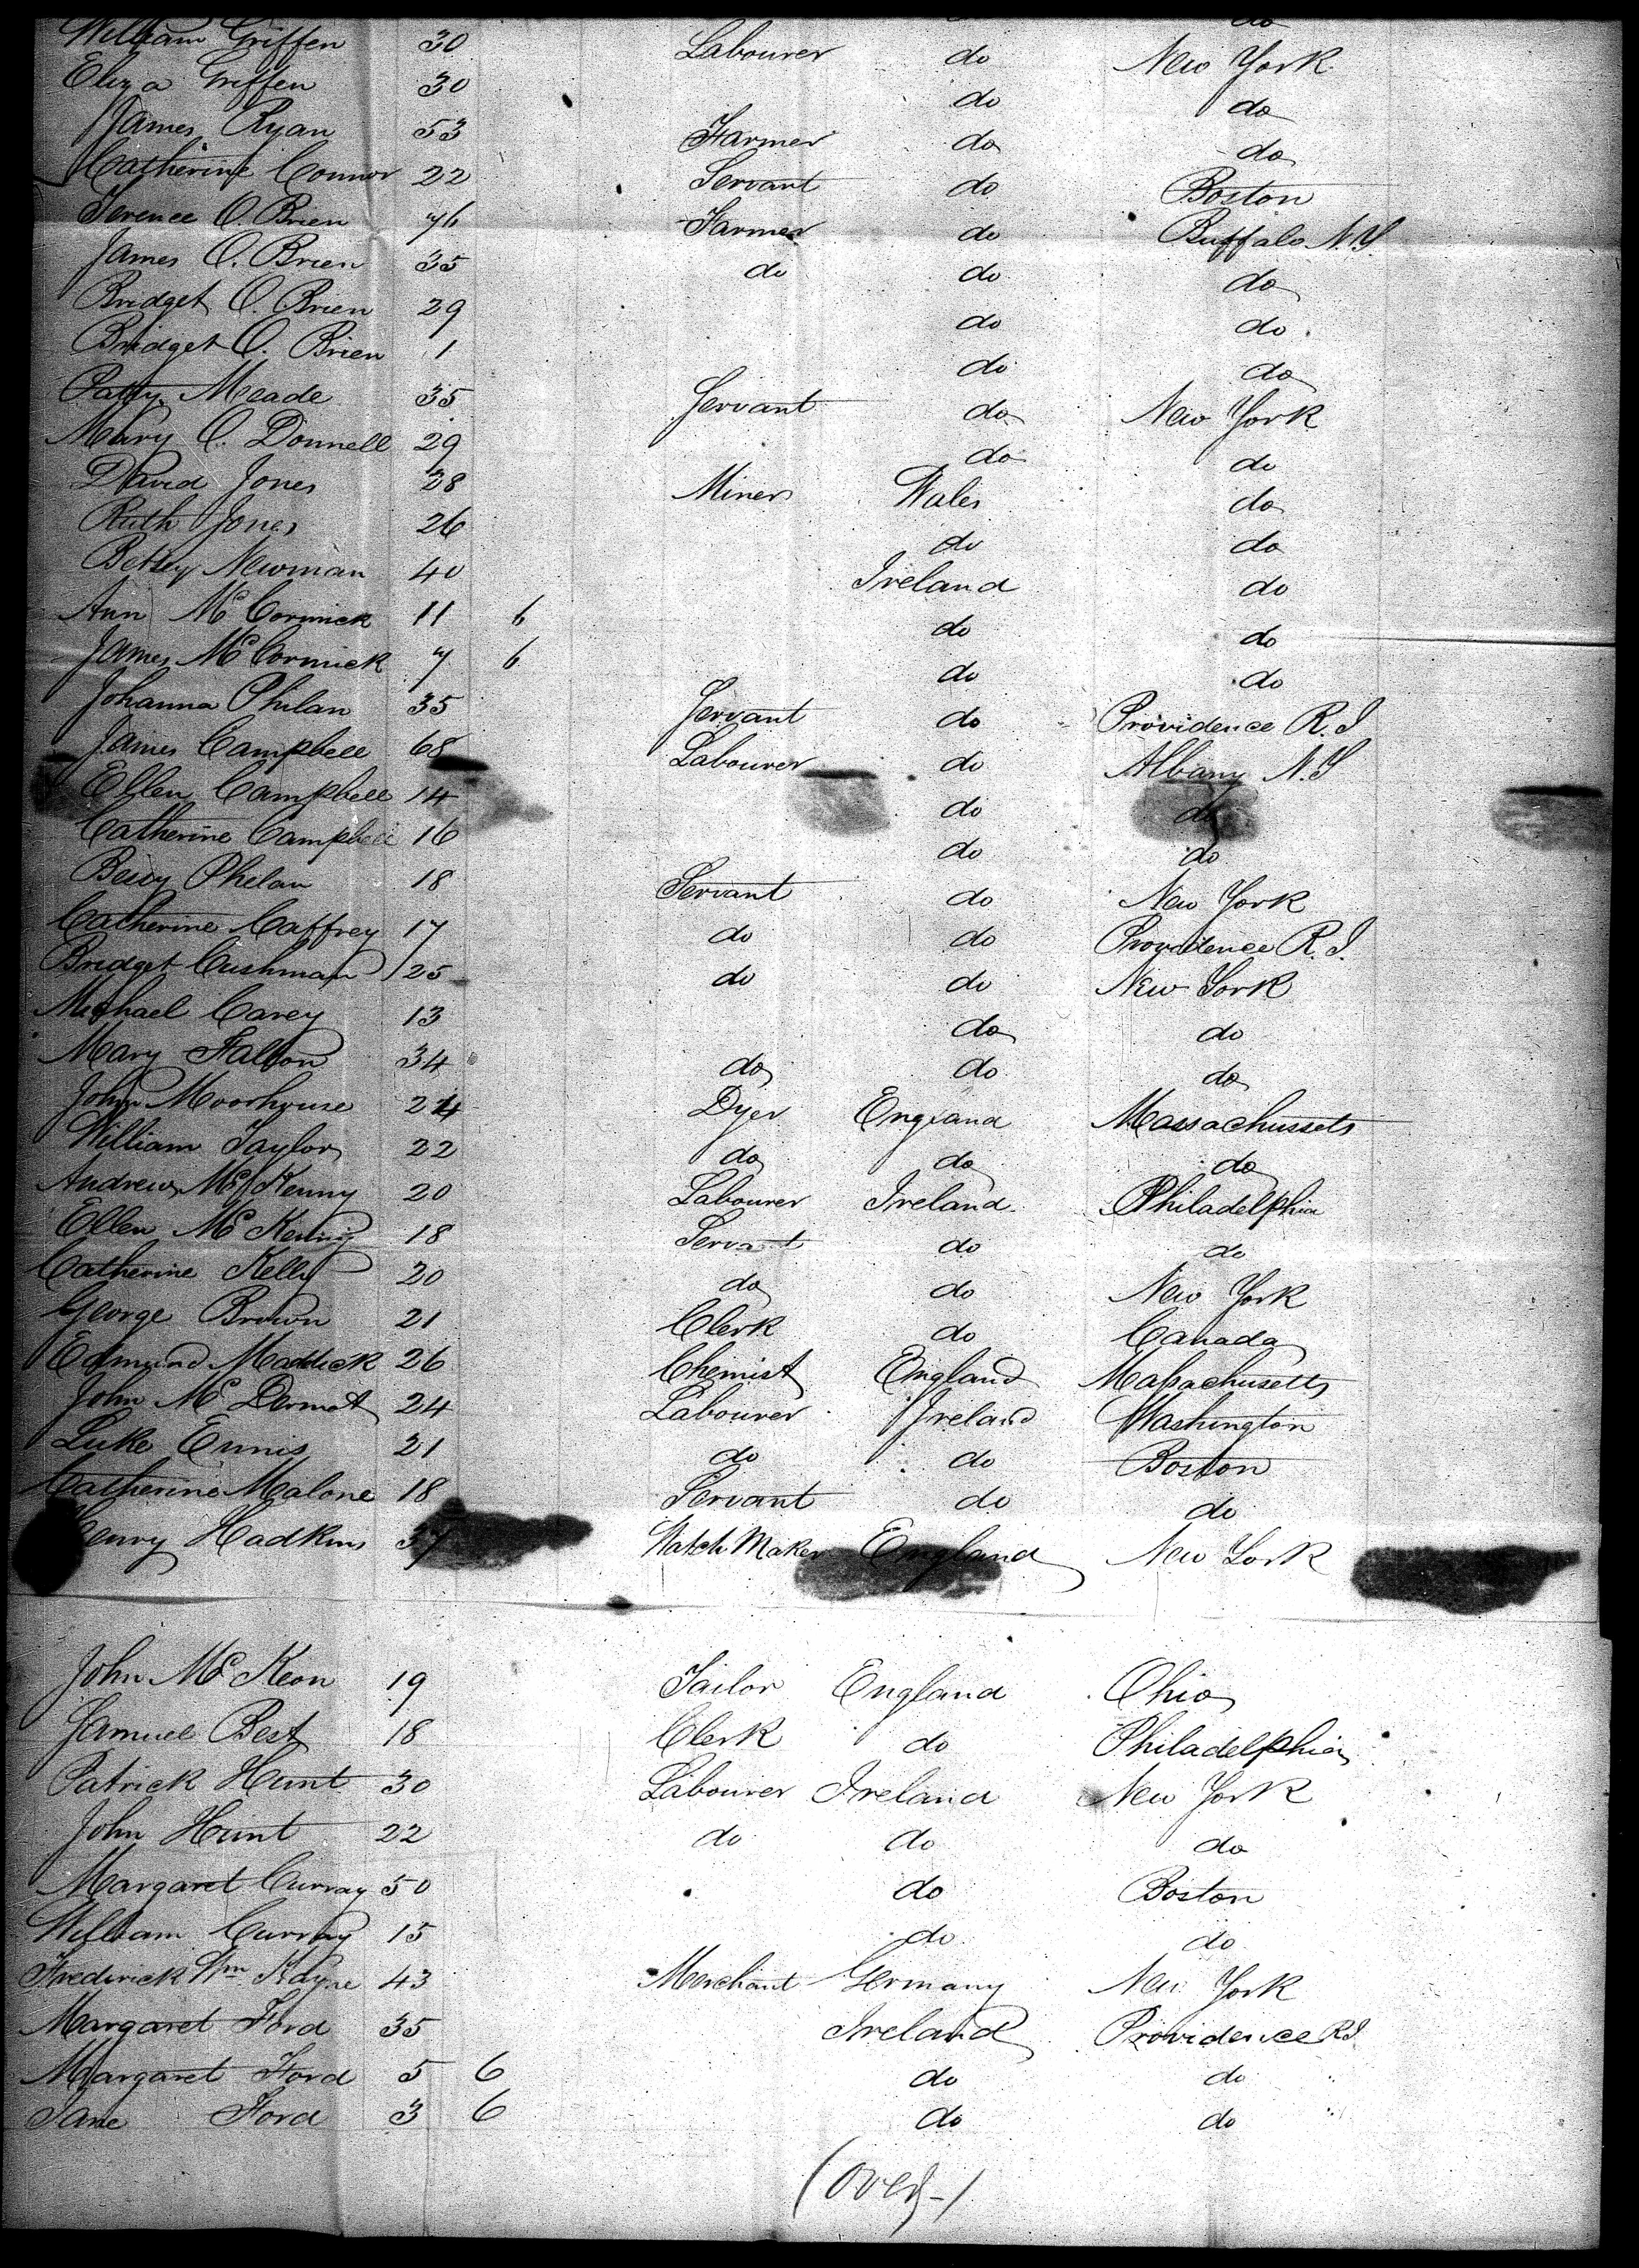 do
William Griffen 30 Labourer do New York
Eliza Griffen 30 do do
James Ryan 53 Farmer do do
Catherine Connor 22 Servant do Boston
Terence O. Brien 76 Farmer do Buffalo N.Y.
James O. Brien 35 do do do
Bridget O. Brien 29 do do
Bridget O. Brien 1 do do
Patty Meade 35 Servant do New York
Mary O. Donnell 29 do do
David Jones 28 Miner Wales do
Ruth Jones 26 do do
Betsy Newman 40 Ireland do
Ann McCormick 11 6 do do
James McCormick 7 6 do do
Johanna Philan 35 Servant do Providence R.I
James Campbell 68 Labourer do Albany N.Y
Ellen Campbell 14 do do
Catherine Campbell 16 do do
Phelan 18 Servant do New York
Catherine Caffrey 17 do do Providence R.I.
Bridget Cushman 25 do do New York
Michael Carey 13 do do
Mary Fallon 34 do do do
John Moorhouse 24 Dyer England Massachussets
William Taylor 22 do do do
Andrew McKenny 20 Labourer Ireland Philadelphia
Ellen McKenny 18 Servant do do
Catherine Kelly 20 do do New York
George Brown 21 Clerk do Canada
Edmund Maddick 26 Chemist England Massachusetts
John McDermot 24 Labourer Ireland Washington
Luke Ennis 21 do do Boston
Catherine Malone 18 Servant do do
Henry Hadkins 37 Watch Maker England New York
John McKeon 19 Tailor England Ohio
Samuel Best 18 Clerk do Philadelphia
Patrick Hunt 30 Labourer Ireland New York
John Hunt 22 do do do
Margaret Curray 50 do Boston
William Curray 15 do do
Frederick Wm Kayne 43 Merchant Germany New York
Margaret Ford 35 Ireland Providence RI.
Margaret Ford 5 6 do do
Jane Ford 3 6 do do
(Over-)